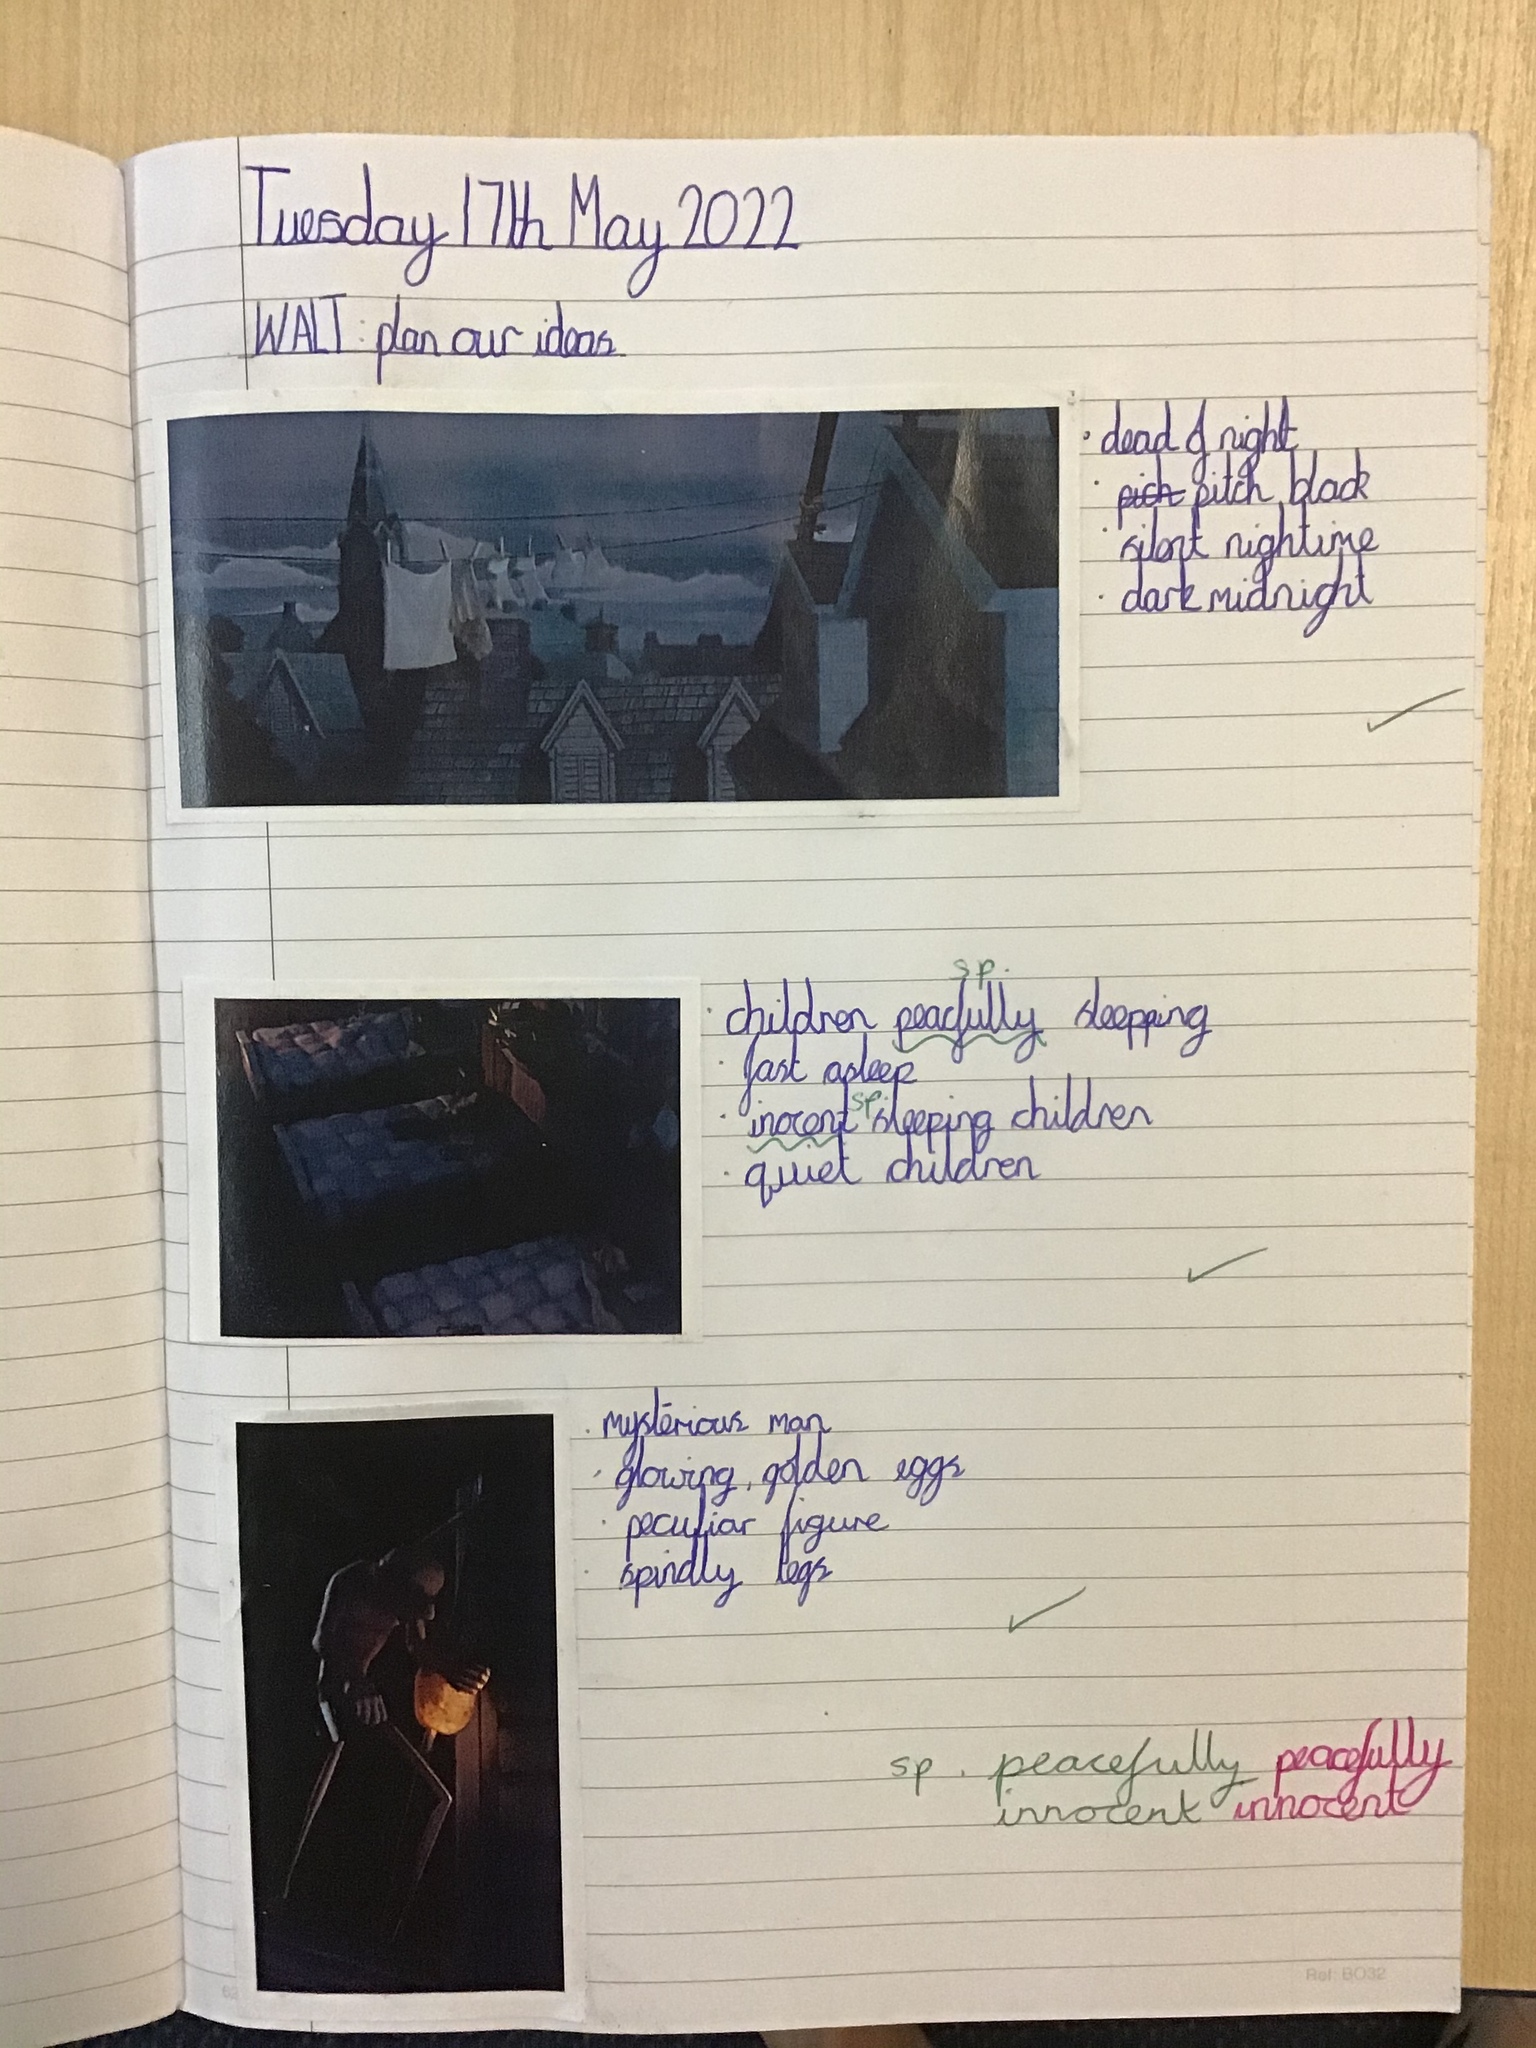 Tuesday 17th May 2022
WALT: plan our ideas
· dead of night
· pich pitch black
· silent nightime
· dark midnight
sp.
· children peacfully sleepping
· fast asleep
sp.
· inocent sleeping children
· quiet children
· mysterious man
· glowing, golden eggs
· peculiar figure
· spindly legs
sp. peacefully peacefully
innocent innocent
Ref: BO32